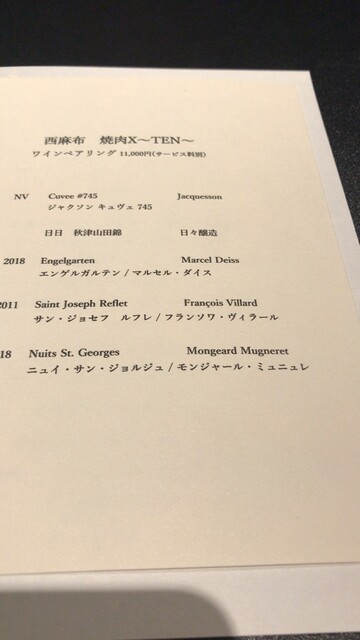 西麻布 焼肉X〜TEN〜
ワインペアリング 11,000円(サービス料別)
NV Cuvee #745 Jacquesson
ジャクソン キュヴェ 745
日日 秋津山田錦 日々醸造
2018 Engelgarten Marcel Deiss
エンゲルガルテン / マルセル・ダイス
2011 Saint Joseph Reflet François Villard
サン・ジョセフ ルフレ / フランソワ・ヴィラール
18 Nuits St. Georges Mongeard Mugneret
ニュイ・サン・ジョルジュ / モンジャール・ミュニュレ